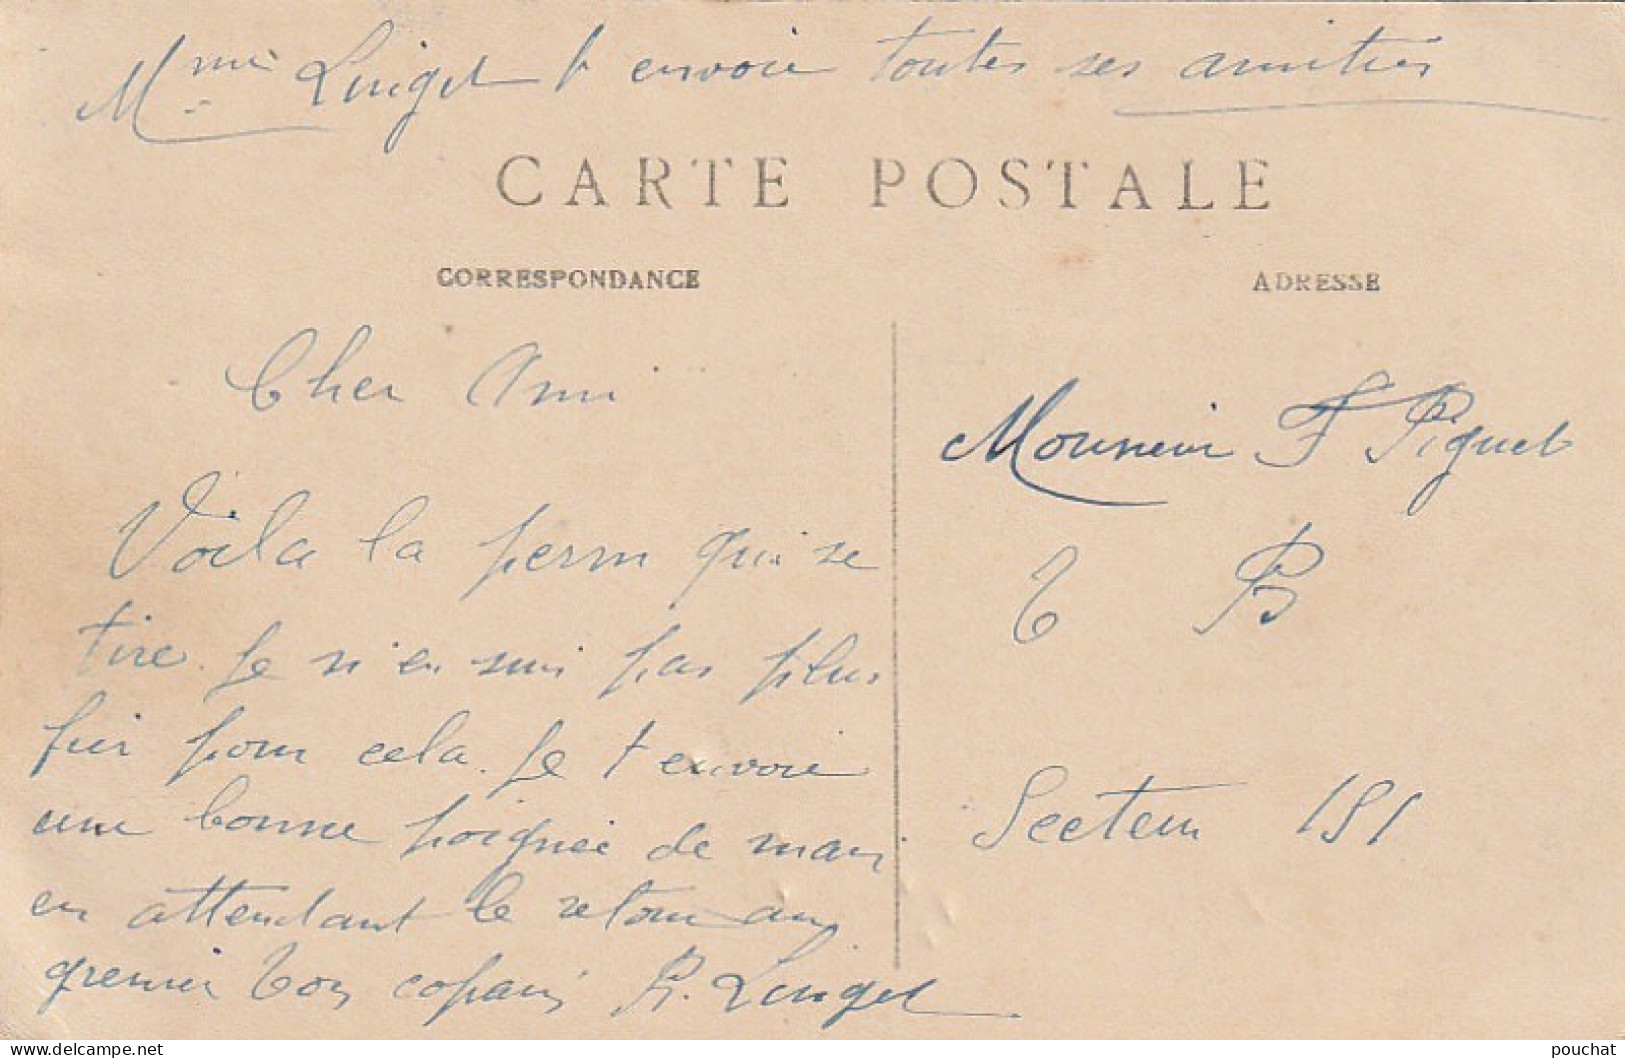 Mme Linget t envoie toutes ses amitiés
CARTE POSTALE
CORRESPONDANCE
ADRESSE
Cher Ami
Voila la perm qui se
tire. Je n'en suis pas plus
fier pour cela. Je t envoie
une bonne poignée de main
en attendant le retour au
grenier Ton copain R. Linget
Monsieur F Piquet
T B
Secteur 151
pouchat